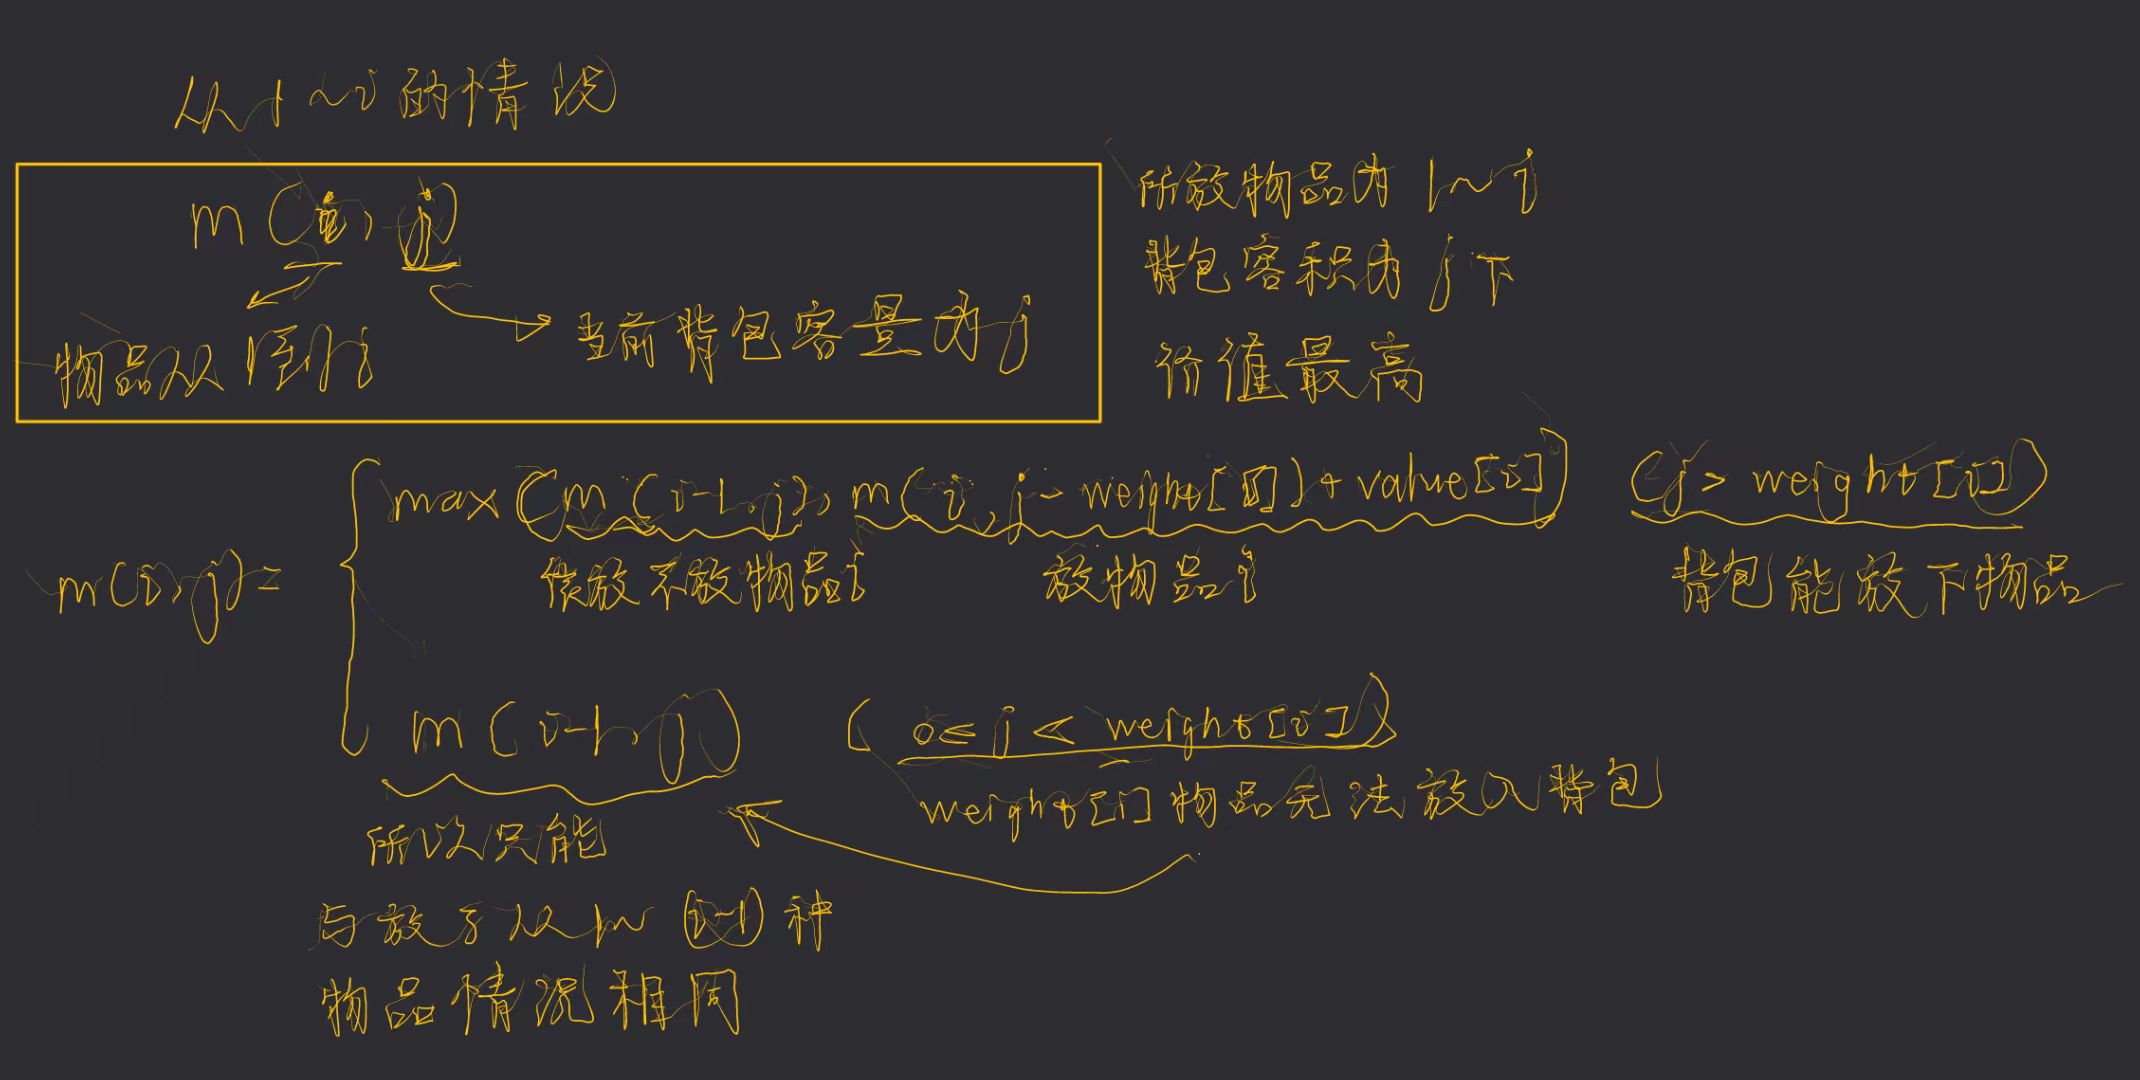 从1~i的情况
m(i, j)
物品从1到i
当前背包容量为j
所放物品为1~i
背包容积为j下
价值最高
m(i, j) =
max(m(i-1, j), m(i, j-weight[i])+value[i]) (j> weight[i])
不放物品i 放物品i 背包能放下物品
m(i-1, j) (0≤ j < weight[i])
weight[i]物品无法放入背包
所以只能
与放了从1~(i-1)种
物品情况相同